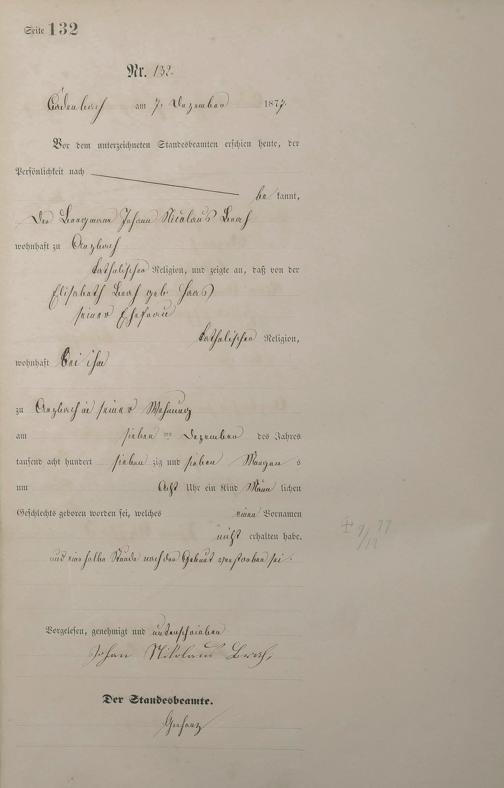 Seite 132
Nr. 132.
Cadenbach am 7. Dezember 1877.
Vor dem unterzeichneten Standesbeamten erschien heute, der
Persönlichkeit nach
be kannt,
Der Bergmann Johann Nicolaus Brach
wohnhaft zu Arzbach
katholischer Religion, und zeigte an, daß von der
Elisabeth Brach geb. Haas
seiner Ehefrau
katholischer Religion,
wohnhaft bei ihm
zu Arzbach in seiner Wohnung
am sieben ten Dezember des Jahres
tausend acht hundert sieben zig und sieben Morgen s
um Acht Uhr ein Kind Männ lichen
Geschlechts geboren worden sei, welches einen Vornamen
nicht erhalten habe.
und eine halbe Stunde nach der Geburt verstorben sei.
Vorgelesen, genehmigt und unterschrieben
Johan Nikolaus Brach,
Der Standesbeamte.
77
7/12